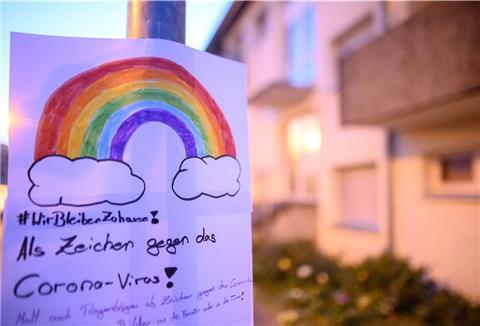 #WirBleibenZohause!
Als Zeichen gegen das
Corona-Virus!
Malt auch Regenbögen als Zeichen gegen das Corona-
Bilder an die Fenster oder an die Türe!